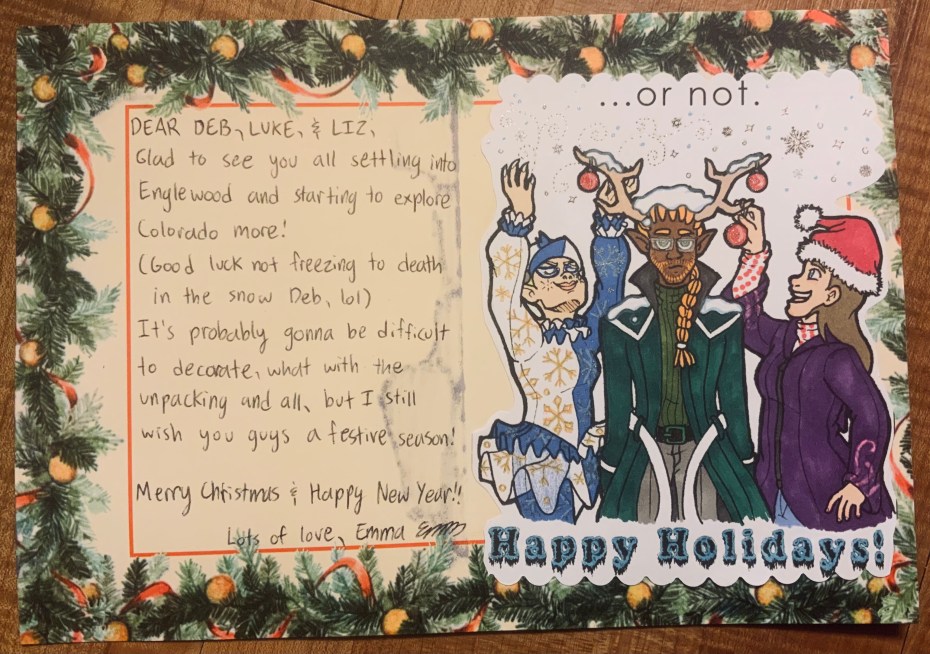 DEAR DEB, LUKE, & LIZ,
Glad to see you all settling into
Englewood and starting to explore
Colorado more!
(Good luck not freezing to death
in the snow Deb, lol)
It's probably gonna be difficult
to decorate, what with the
unpacking and all, but I still
wish you guys a festive season!
Merry Christmas & Happy New Year!!
Lots of love, Emma
...or not.
Happy Holidays!